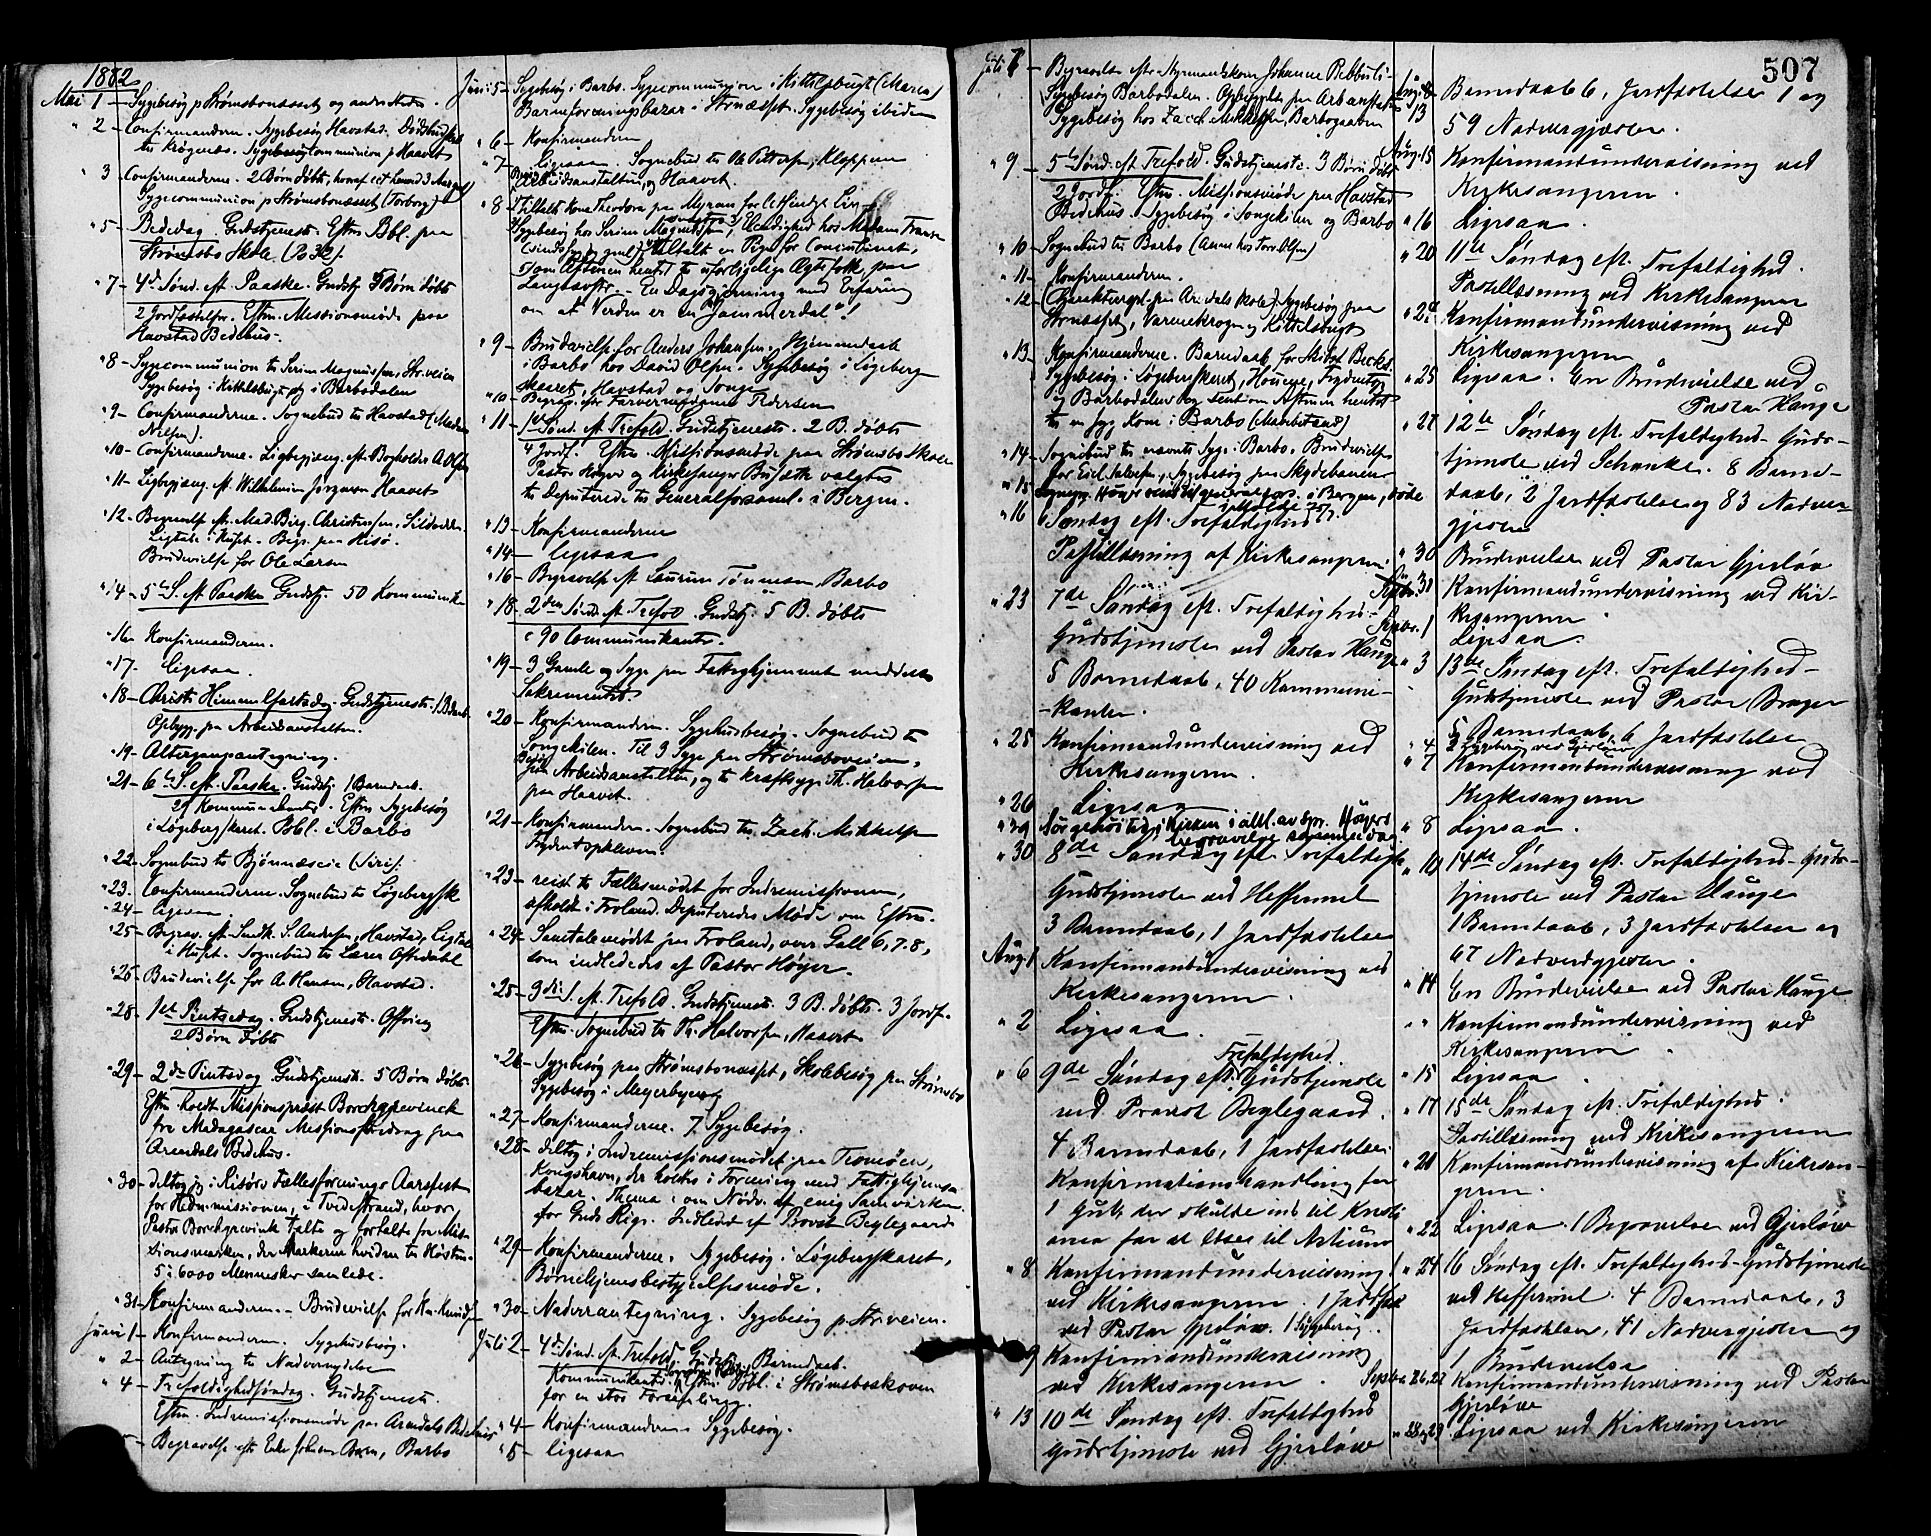 1882
Mai 1 - Sygebesøg p Strømsbonesset og andre Steder.
" 2 - Confirmanderne. Sygebesøg Havstad. Dødsbud
til Krøgenes. Sygecommunion p Haavet
" 3 - Confirmanderne. 2 Børn døbte
Sygecommunion p Strømsbonæsset (Torborg)
" 5 - Bededag. Gudstjeneste. Eftm Bbl. paa
Strømsbo Skole
" 7 - 4de Sønd. eft. Paaske. Gudstj. Børn døbte
2 Jordfæstelser. Eftm. Missionsmøde paa
Havstad Bedehus.
" 8 - Sygecommunion til Serine Magnussen, Str.veien
Sygebesøg i Kittelsbugt og i Barbodalen
" 9 - Confirmanderne. Sognebud til Havstad (Madam
Nilsen).
" 10 - Confirmanderne. Ligbegjæng. eft. Bogholder A Olsen
" 11 - Ligbegjæng. eft. Wilhelmine Jørgensen Haavet
" 12 - Begravelse eft. Mad. Birg. Christensen,
Ligtale i Huset. Begr. paa Hisø.
Brudevielse for Ole Larsen
" 14 - 5te S. eft Paaske Gudstj. 50 Kommunik.
" 16 - Konfirmanderne.
" 17 - ligesaa
" 18 - Christi Himmelfartsdag. Gudstjeneste. 1 Barnd.
Opbygg. paa Arbeidsanstalten.
" 19 - Altergangsantegning.
" 21 - 6te S. eft. Paaske. Gudstj. 1 Barnedaab.
29 Kommunikanter. Eftm Sygebesøg
i Løgebergskaret. Bbl. i Barbo
" 22 - Sognebud til Bjønnæs (Siri).
" 23 - Confirmanderne. Sognebud til Løgebergsk
" 24 - ligesaa
" 25 - Begrav. eft. Snedk. S. Andersen, Havstad, Ligtale
i Huset. Sognebud til Lærer Oftedahl
" 26 - Brudevielse for A Hansen, Havstad.
" 28 - 1st Pintsedag. Gudstjeneste. Offring
2 Børn døbte
" 29 - 2den Pintsdag Gudstjeneste. 5 Børn døbte
Eftm holdt Missionsprest Borchgrevinck
fra Madagascar Missionsforedrag paa
Arendals Bedehus.
" 30 - deltog jeg i Risørs Fællesforenings Aarsfest
for Hedn.missionen, i Tvedestrand, hvor
Pastor Borchgrevink talte og fortalte fra Mis-
sionsmarken, der Markerne hvidne til Høsten.
5 à 6000 Mennesker samlede.
" 31 - Konfirmanderne. - Brudevielse for Kn. Knudsen
Juni 1 - Konfirmanderne. Sygehusbesøg.
" 2 - Antegning til Nadvernydelse
" 4 - Trefoldighedssøndag. Gudstjeneste.
Eftm. Indremissionsmøde paa Arendals Bedehus
Begravelse eft. Enke Barbo
Juni 5 - Sygebesøg i Barbo. Sygecommunion i Kittelsbugt (Maren)
Barneforeningsbazar i Strnæsset. Sygebesøg ibiden
" 6 - Konfirmanderne
" 7 - ligesaa. Sognebud til Ole Pettersen, Kloppene
Besøg Arbeidsanstalten, og Haavet.
" 8 - Tiltalt Kone Theodora paa Myrene for
Sygebesøg hos Serine Magnussen, Elendighed hos Madam Franse
(sindssyg) tiltalt en Pige for Concubinat,
om Aftenen hentet til uforligelige Ægtefolk paa
Langsæter. - En Dagsgjerning med Erfaring
om at Verden er en "Jammerdal"!
" 9 - Brudevielse for Anders Johansen, Hjemmedaab
i Barbo hos David Olsen. Sygebesøg i Løgeberg-
skaret, Havstad og Songe
" 10 - Begrav. eft. Farver Pedersen
" 11 - 1st Sønd. eft. Trefold. Gudstjeneste. 2 B. døbte
4 Jordf. Eftm. Missionsmøde paa Strømsbo Skole
Pastor Høyer og Kirkesanger Bufæth valgtes
til Deputerede til Generalforsaml. i Bergen.
" 13 - Konfirmanderne
" 14 - ligesaa
" 16 - Begravelse eft Laurine Tønnesen, Barbo
" 18 - 2den Sønd. eft Trefold. Gudstj. 5 B. døbte
c 90 Communikanter.
" 19 - 3 Gamle og Syge paa Fattighjemmet meddeelte
Sakramentet.
" 20 - Konfirmanderne. Sygehusbesøg. Sognebud til
Songekilen. Til 3 Syge paa Strømsboveien,
Besøg paa Arbeidsanstalten, og til kræftsyge Th. Halvorsen
paa Haavet.
" 21 - Konfirmanderne. Sognebud til Zach. Mikkelsen
Frydentopkleven.
" 23 - reist til Fællesmødet for Indremissionen,
afholdt i Froland. Deputeredes Møde om Eftm.
" 24 - Samtalemødet paa Froland, over Gall 6, 7-8,
som indledes af Pastor Høyer.
" 25 - 3die S. eft Trefold. Gudstjeneste. 3 B. døbte. 3 Jordf.
Eftm. Sognebud til Th. Halvorsen, Haavet
" 26 - Sygebesøg paa Strømsbonæsset, Skolebesøg paa Strømsbo
Sygebesøg i Meyerbyen
" 27 - Konfirmanderne. 7 Sygebesøg.
" 28 - deltog i Indremissionsmødet paa Tromøen,
Kongshavn, der holdtes i Forening med Fattighjems
bazar. Thema: om Nødv. af enig Samvirken
for Guds Rige. Indledet af Provst Beglegaard
" 29 - Konfirmanderne. Sygebesøg i Løgebergskaret,
Børnehjemsbestyrelsesmøde.
" 30 - Nadverantegning. Sygebesøg p Str.veien.
Juli 2 - 4de Sønd. eft. Trefold. Gudstj. Barnedaab.
Kommunikanter. Eftm Bbl. i Strømsboskoven
for en stor Forsamling.
" 4 - Konfirmanderne Sygebesøg.
" 5 - ligesaa
507
Juli 7 - Begravelse eft. Styrmandskone Johanne
Sygebesøg Barbodalen. Opbyggelse paa Arb.anstalten
Sygebesøg hos Zach Mikkelsen, Barbogaarden
" 9 - 5te Sønd. eft Trefold. Gudstjeneste. 3 Børn døbt
2 Jordf. Eftm. Missionsmøde paa Havstad
Bedehus. Sygebesøg i Songekilen og Barbo
" 10 - Sognebud til Barbo (Anne hos Tore Olsen)
" 11 - Konfirmanderne.
" 12 - Sygebesøg paa
Strnæsset, Varmekrogen og Kittelsbugt
" 13 - Konfirmanderne. Barnedaab for Beck.
Sygebesøg i Løgebergskaret,
og Barbodalen og sent om Aftenen hentet
til en syg Kone i Barbo
" 14 - Sognebud til nævnte Syge i Barbo. Brudevielse
for Sygebesøg paa Skydebanen
" 15 Sognepr. Höyer reist til generalfors. i Bergen, døde
" 16 6 Søndag eft. Trefoldighed
Postillæsning af Kirkesangeren.
" 23 7de Søndag eft. Trefoldighed -
Gudstjeneste ved Pastor Hauge
5 Barnedaab, 40 Kommuni-
-kanter.
" 25 Konfirmandundervisning ved
Kirkesangeren.
" 26 Ligesaa
" 29 Sørgehøitid i Kirken i anl. av spr. Höyers
begravelse samme dag
" 30 8de Søndag eft Trefoldigh
Gudstjeneste ved Heffermel
3 Barnedaab, 1 Jordfæstelse
Aug. 1 Konfirmantundervisning ved
Kirkesangeren.
" 2 Ligesaa.
" 6 9de Søndag eft. Trefoldighed Gudstjeneste
ved Provst Beglegaard.
4 Barnedaab, 1 Jordfæstelse.
Konfirmationshandling for
1 Gut, der skulde ind til Kristi
ania for at
" 8 Konfirmandundervisning
ved Kirkesangeren. 1 Jordfæst
ved Pastor Gjerløw. 1 Sygebesøg.
" 9 Konfirmandundervisning
ved Kirkesangeren.
" 13 10de Søndag eft. Trefoldighed
Gudstjeneste ved Gjerløw
Aug. 13 Barnedaab 6, Jordfæstelse 1 og
59 Nadvergjæster.
Aug. 15 Konfirmandundervisning ved
Kirkesangeren.
" 16 Ligesaa.
" 20 11te Søndag eft. Trefoldighed.
Postillæsning ved Kirkesangeren
Konfirmandundervisning ved
Kirkesangeren
" 25 Ligesaa. En Brudevielse ved
Pastor Hauge
" 27 12te Søndag eft. Trefoldighed - Guds-
tjeneste ved Schanke. 8 Barne-
daab, 2 Jordfæstelse og 83 Nadver-
gjester
" 30 Brudevielse ved Pastor Gjerløw
" 31 Konfirmandundervisning ved Kir-
kesangeren
Septbr. 1 Ligesaa.
" 3 13de Søndag eft. Trefoldighed -
Gudstjeneste ved Pastor Brager
5 Barnedaab, 6 Jordfæstelser
" 4 2 Sygebesøg ved Gjerløw
" 7 Konfirmantundervisning ved
Kirkesangeren
" 8 Ligesaa.
" 10 14de Søndag eft. Trefoldighed - Guds-
tjeneste ved Pastor Hauge
1 Barnedaab, 3 Jordfæstelser og
67 Nadvergjester.
" 14 En Brudevielse ved Pastor Hauge
" " Konfirmandundervisning ved
Kirkesangeren.
" 15 Ligesaa.
" 17 15de Søndag eft. Trefoldighed.
Postillæsning ved Kirkesangeren
" 21 Konfirmandundervisning af Kirkesan-
geren.
" 22 Ligesaa. 1 Begravelse ved Gjerløw
" 24 16 Søndag eft. Trefoldighed - Gudstjeneste
ved Heffermel. 4 Barnedaab, 3
Jordfæstelser, 41 Nadvergjester og
1 Brudevielse
Septbr. 26, 27 Konfirmandundervisning ved Pastor
Gjerløw
" 28 og 29 Ligesaa ved Kirkesangeren